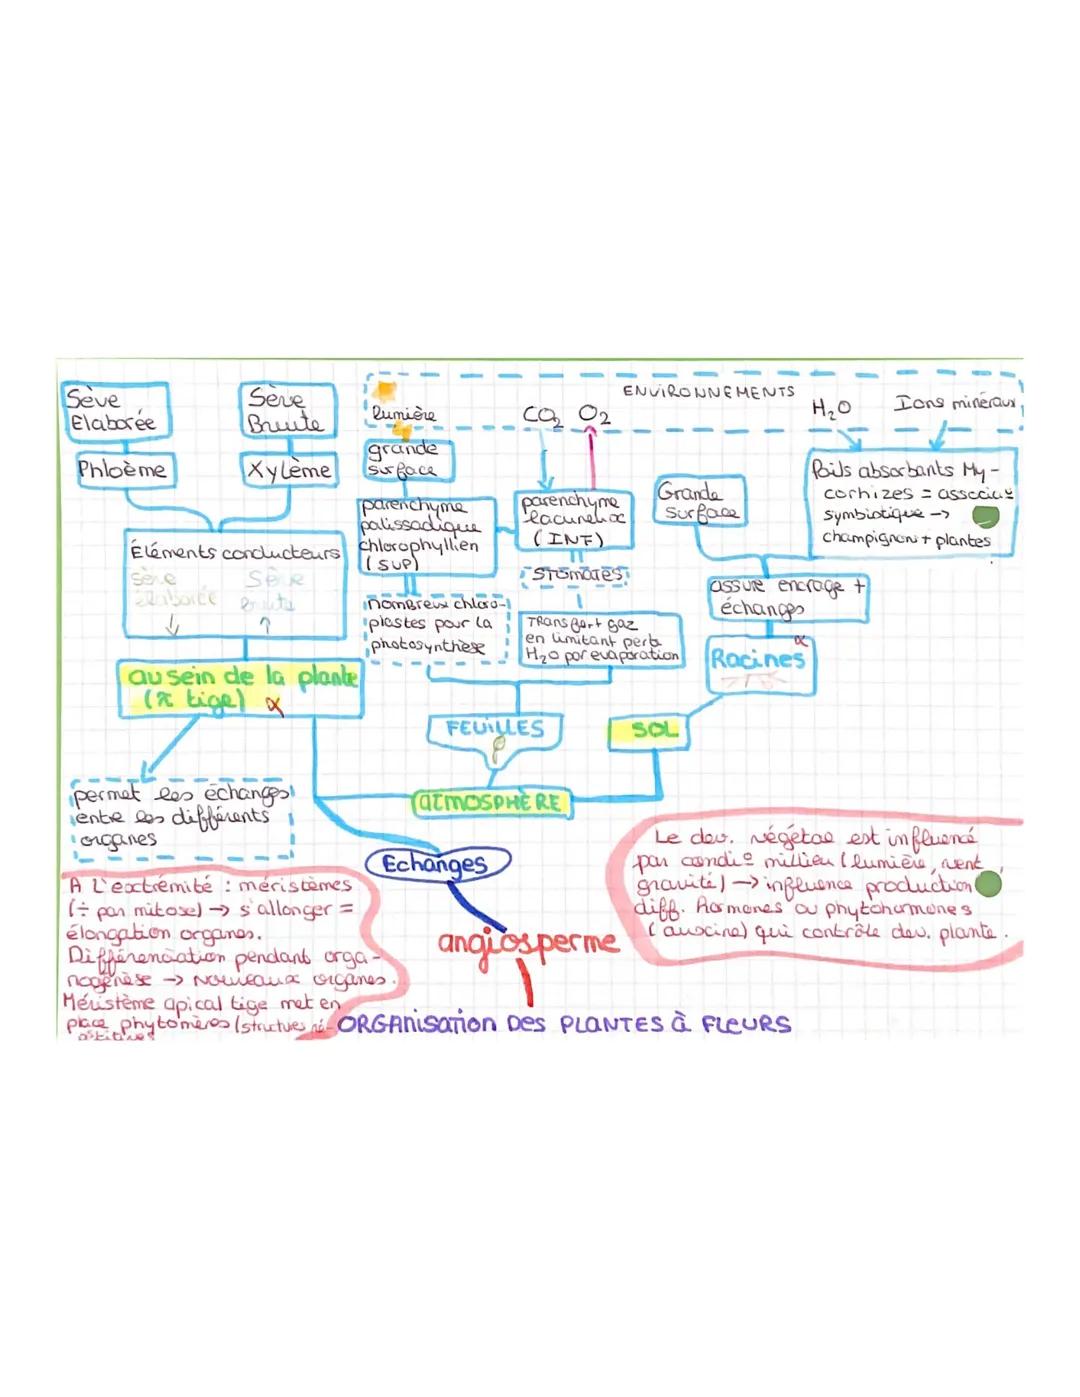 Sève
Elaborée
Sève
Brute
Phloème
Xylème
Éléments conducteurs
Sève
élaborée
Sève
brute
au sein de la plante
(π tige) α
permet les échanges
entre les différents
organes
ENVIRONNEMENTS
lumière
CO₂ O₂
H₂O
Ions minéraux
grande
surface
parenchyme
palissadique
chlorophyllien
(SUP)
nombreux chloro-
plastes pour la
photosynthèse
parenchyme
lacuneux
(INF)
STOMATES
Transfert gaz
en limitant perte
H₂O par evaporation
FEUILLES
Grande
Surface
Poils absorbants My-
corhizes =
symbiotique →
champignon + plantes
assure encrage +
échanges
Racines α
SOL
ATMOSPHÈRE
Echanges
angiosperme
ORGAnisation Des PLANTES à FLEURS
A l'extrémité : méristèmes
(÷ par mitose) → s'allonger =
élongation organes.
Différenciation pendant orga-
nogénèse → nouveaux organes.
Méristème apical tige met en
place phytomères (structures ré-
Le dev. végétal est influencé
par condi° millieu (lumière, vent,
gravité) → influence production
diff. Hormones ou phytohormones
(auxine) qui contrôle dev. plante.